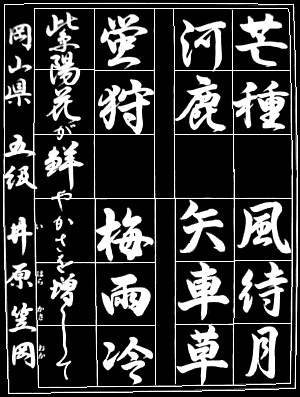 芒種 風待月
河鹿 矢車草
蛍狩 梅雨冷
紫陽花が鮮やかさを増して
岡山県 五級 井原笠岡
いはらかさおか